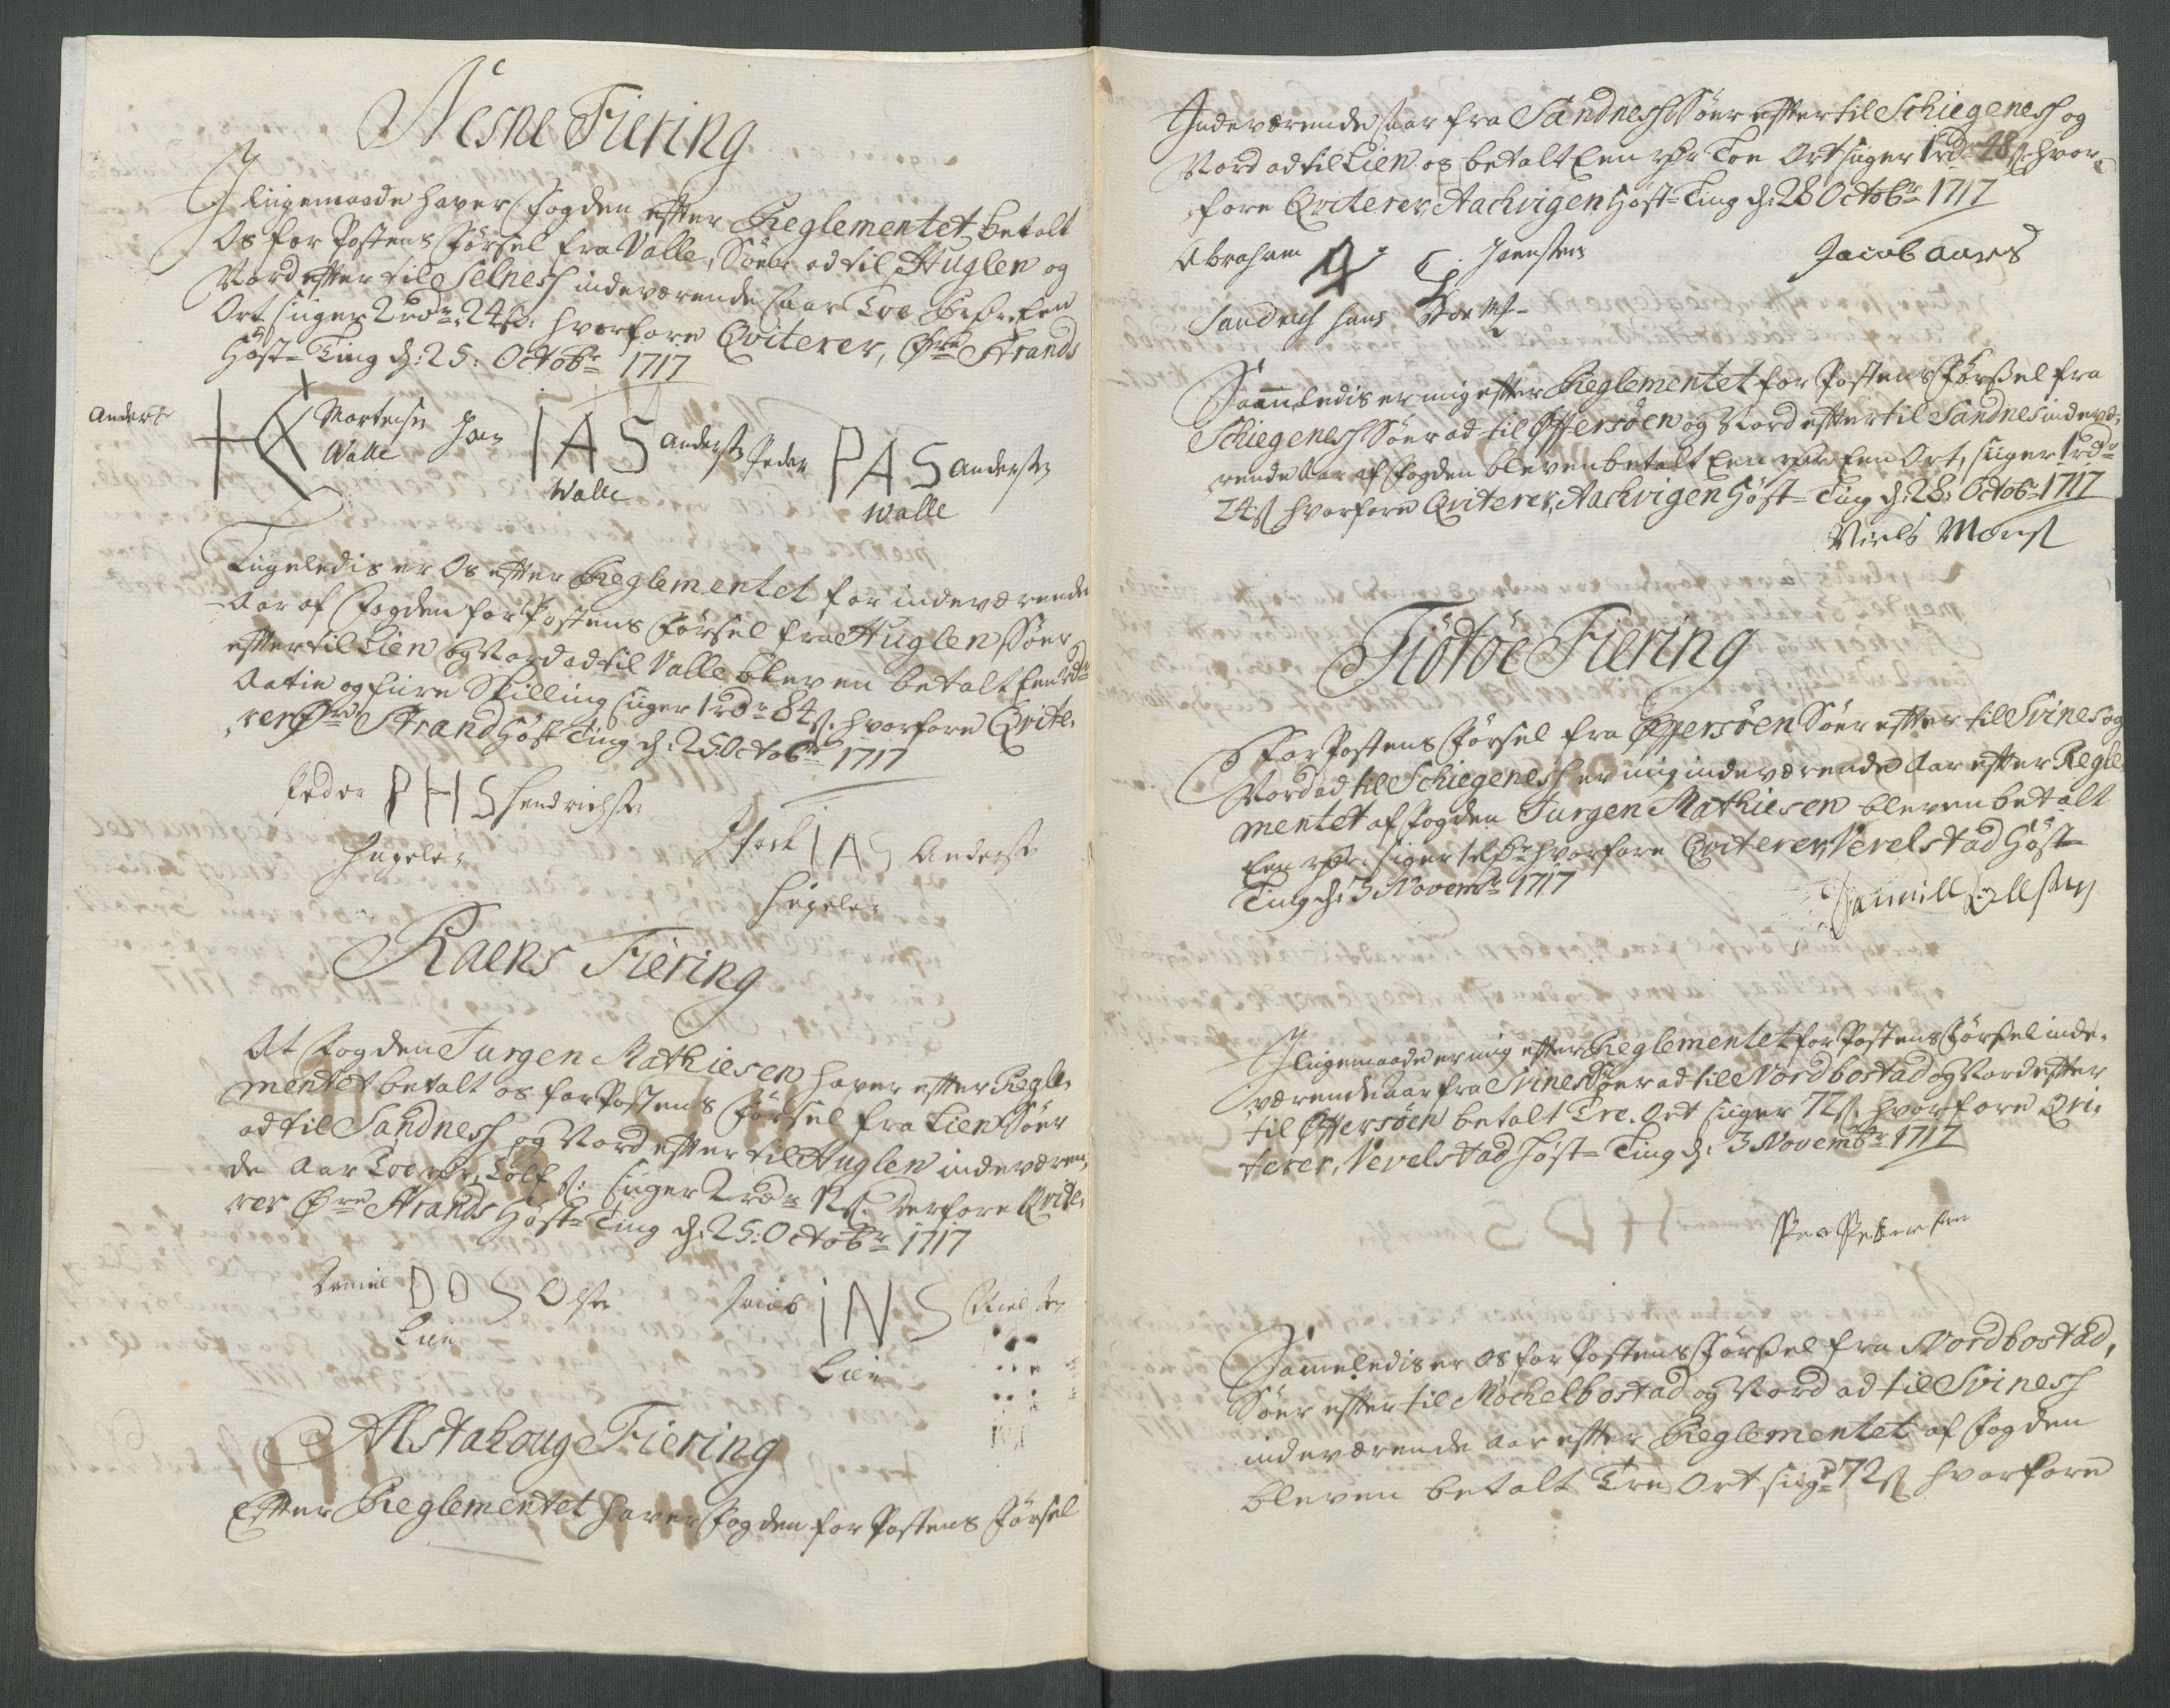 Nesne Fiering
I liigemaade haver fogden efter Reglementet betalt
Os for Postens førsel fra Valle, Sønder ad til Huglen og
Nord efter til Selnesh indeværende Aar Toe rdr. Een
Ort siiger 2 rdr: 24 s: hvorfore Qviterer, Ørne Strands
Høst-Ting d: 25: Octobr 1717
Anders Mortensen Joen IAS Andersen Peder PAS Andersen
Walle
Walle
Walle
Liigeledis er Os efter Reglementet for indeværende
Aar af fogden for Postens førsel fra Huglen Søer
efter til Lien og Nord ad til Valle bleven betalt Een rdr
Aatie og fiire Skilling siiger 1 rdr 84 s. hvorfore Qvite-
rer Strand Høst Ting d: 25 Octobr 1717
Peder PHS Hendrichsen
IAS Andersen
Raens Fiering
At fogden Jurgen Mathiesen haver efter Regle-
mentet betalt os for Postens førsel fra Lien Søer
ad til Sandnesh og Nord efter til Huglen indeværen-
de Aar Toe rdr, Tolf s: siiger 2 rdr 12 s. derfore Qvite-
rer Ørne Strands Høst-Ting d: 25: Octobr 1717
Daniel DOS Olsen Jacob INS Nielsen
Lien
Lien
Alstahoug Fiering
Efter Reglementet haver fogden for Postens førsel
Indeværende Aar fra Sandnesh Søer efter til Schiegenesh og
Nord ad til Lien os betalt Een rdr Toe Ort siiger 1 rdr 48 s. hvor-
fore Qviterer, Aachvigen Høst-Ting d: 28 Octobr 1717
Abraham Jensen Jacob Aars
Sandnesh Hans
Saamledis er mig efter Reglementet for Postens førsel fra
Schiegenesh Søer ad til Offersøen og Nord efter til Sandnes indevæ-
rende Aar af fogden bleven betalt Een rdr Een Ort, siiger 1 rdr
24 s hvorfore Qviterer, Aachvigen Høst-Ting d: 28: Octobr 1717
Niels Mons
Tiøtøe Fiering
For Postens førsel fra Offersøen Søer efter til Svines og
Nord ad til Schiegenesh er mig indeværende Aar efter Regle
mentet af fogden Jurgen Mathiesen bleven betalt
Een rdr. siger 1 rdr hvorfore Qviterer, Vevelstad Høst-
Ting d: 3 Novembr 1717
Pamill Ollsen
I liigemaade er mig efter Reglementet for Postens førsel inde-
værende Aar fra Svines Søer ad til Nordbostad og Nord efter
til Offersøen betalt Tre Ort siiger 72 s. hvorfore Qvi-
terer, Vevelstad Høst-Ting d: 3 Novembr 1717
Peer Pedersen
Sammeledis er os for Postens førsel fra Nordbostad,
Søer efter til Mochelbostad og Nord ad til Svinesh
indeværende Aar efter Reglementet af fogden
bleven betalt Tre Ort siigr 72 s hvorfore